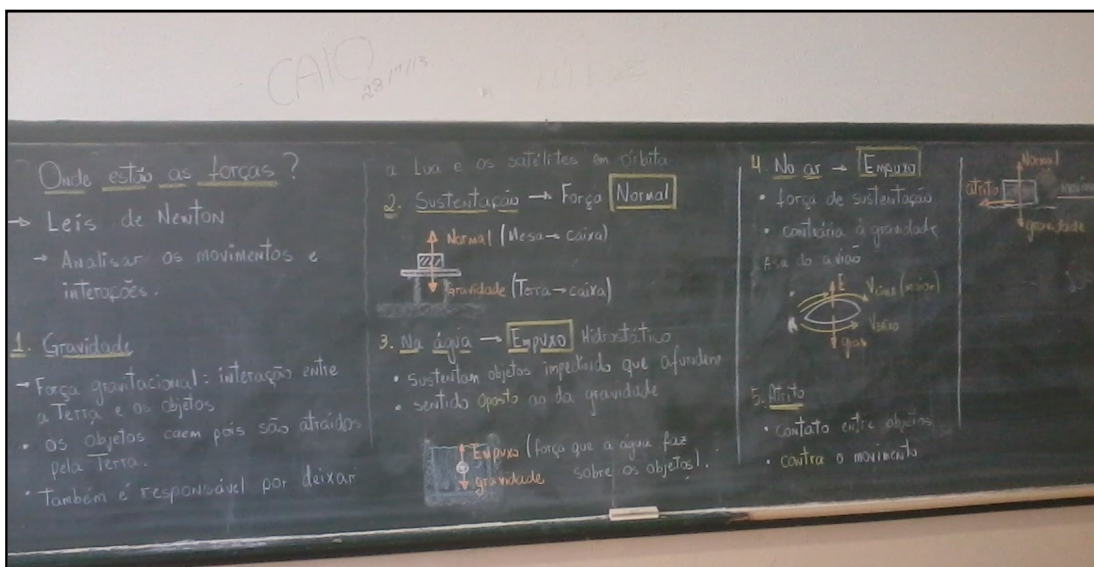 CAIO
Onde estão as forças?
→ Leis de Newton
→ Analisar os movimentos e
interações.
1. Gravidade
→ Força gravitacional: interação entre
a Terra e os objetos
• os objetos caem pois são atraídos
pela Terra.
• também é responsável por deixar
a Lua e os satélites em órbita
2. Sustentação → Força Normal
Normal (Mesa → caixa)
Gravidade (Terra → caixa)
3. Na água → Empuxo Hidrostático
• sustentam objetos impedindo que afundem
• sentido oposto ao da gravidade
Empuxo (força que a água faz
gravidade sobre os objetos).
4. No ar → Empuxo
• força de sustentação
• contrária à gravidade
Asa do avião
E
Vcima (maior)
Vbaixo
grav
5. Atrito
• contato entre objetos
• contra o movimento
Normal
atrito
gravidade